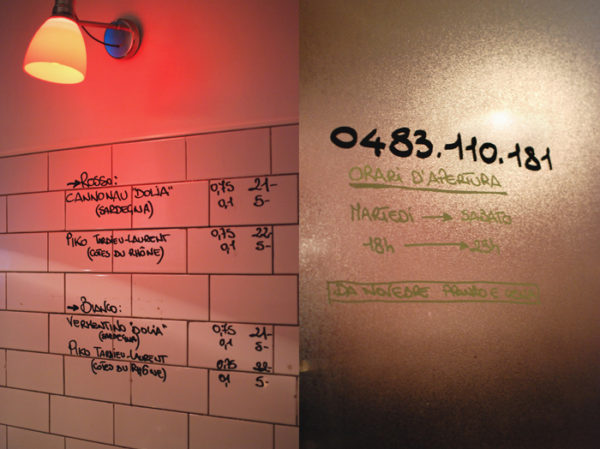 → Rosso:
CANNONAU "DOLIA" 0,75 21-
(SARDEGNA) 0,1 5-
PIKO TARDIEU-LAURENT 0,75 22-
(COTES DU RHÔNE) 0,1 5-
→ BIANCO:
VERMENTINO "DOLIA" 0,75 21-
(SARDEGNA) 0,1 5-
PIKO TARDIEU-LAURENT 0,75 22-
(COTES DU RHÔNE) 0,1 5-
0483.110.181
ORARI D'APERTURA
MARTEDÌ → SABATO
18h → 23h
DA NOVEBRE PRANZO E